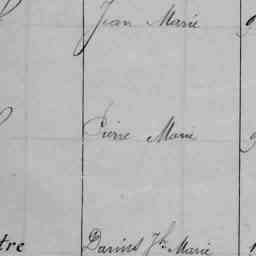 Jean Marie
Pierre Marie
tre Darius Jh Marie